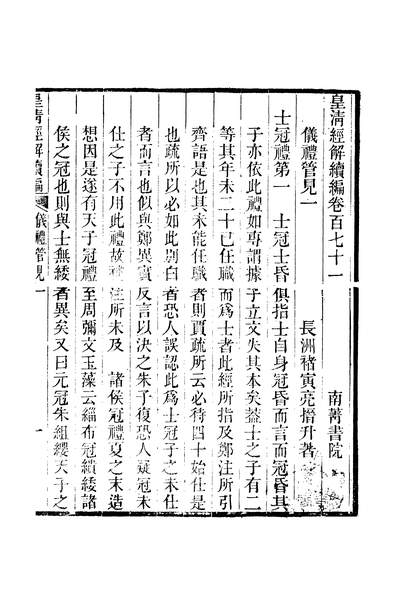 皇清經解續編卷百七十一　　　　南菁書院
儀禮管見一　　　　長洲褚寅亮搢升著
士冠禮第一　士冠士昏俱指士自身冠昏而言而冠昏其
子亦依此禮如專謂據子立文失其本矣蓋士之子有二
等其年未二十已任職而爲士者此經所指及鄭注所引
齊語是也其未能任職者則賈疏所云必待四十始仕是
也疏所以必如此別白者恐人誤認此爲士冠子之未仕
者而言也似與鄭異實反言以決之朱子復恐人疑冠未
仕之子不用此禮故補注所未及　諸侯冠禮夏之末造
想因是遂有天子冠禮至周彌文玉藻云緇布冠繢緌諸
侯之冠也則與士無緌者異矣又曰元冠朱組纓天子之
皇清經解續編　儀禮管見一　一